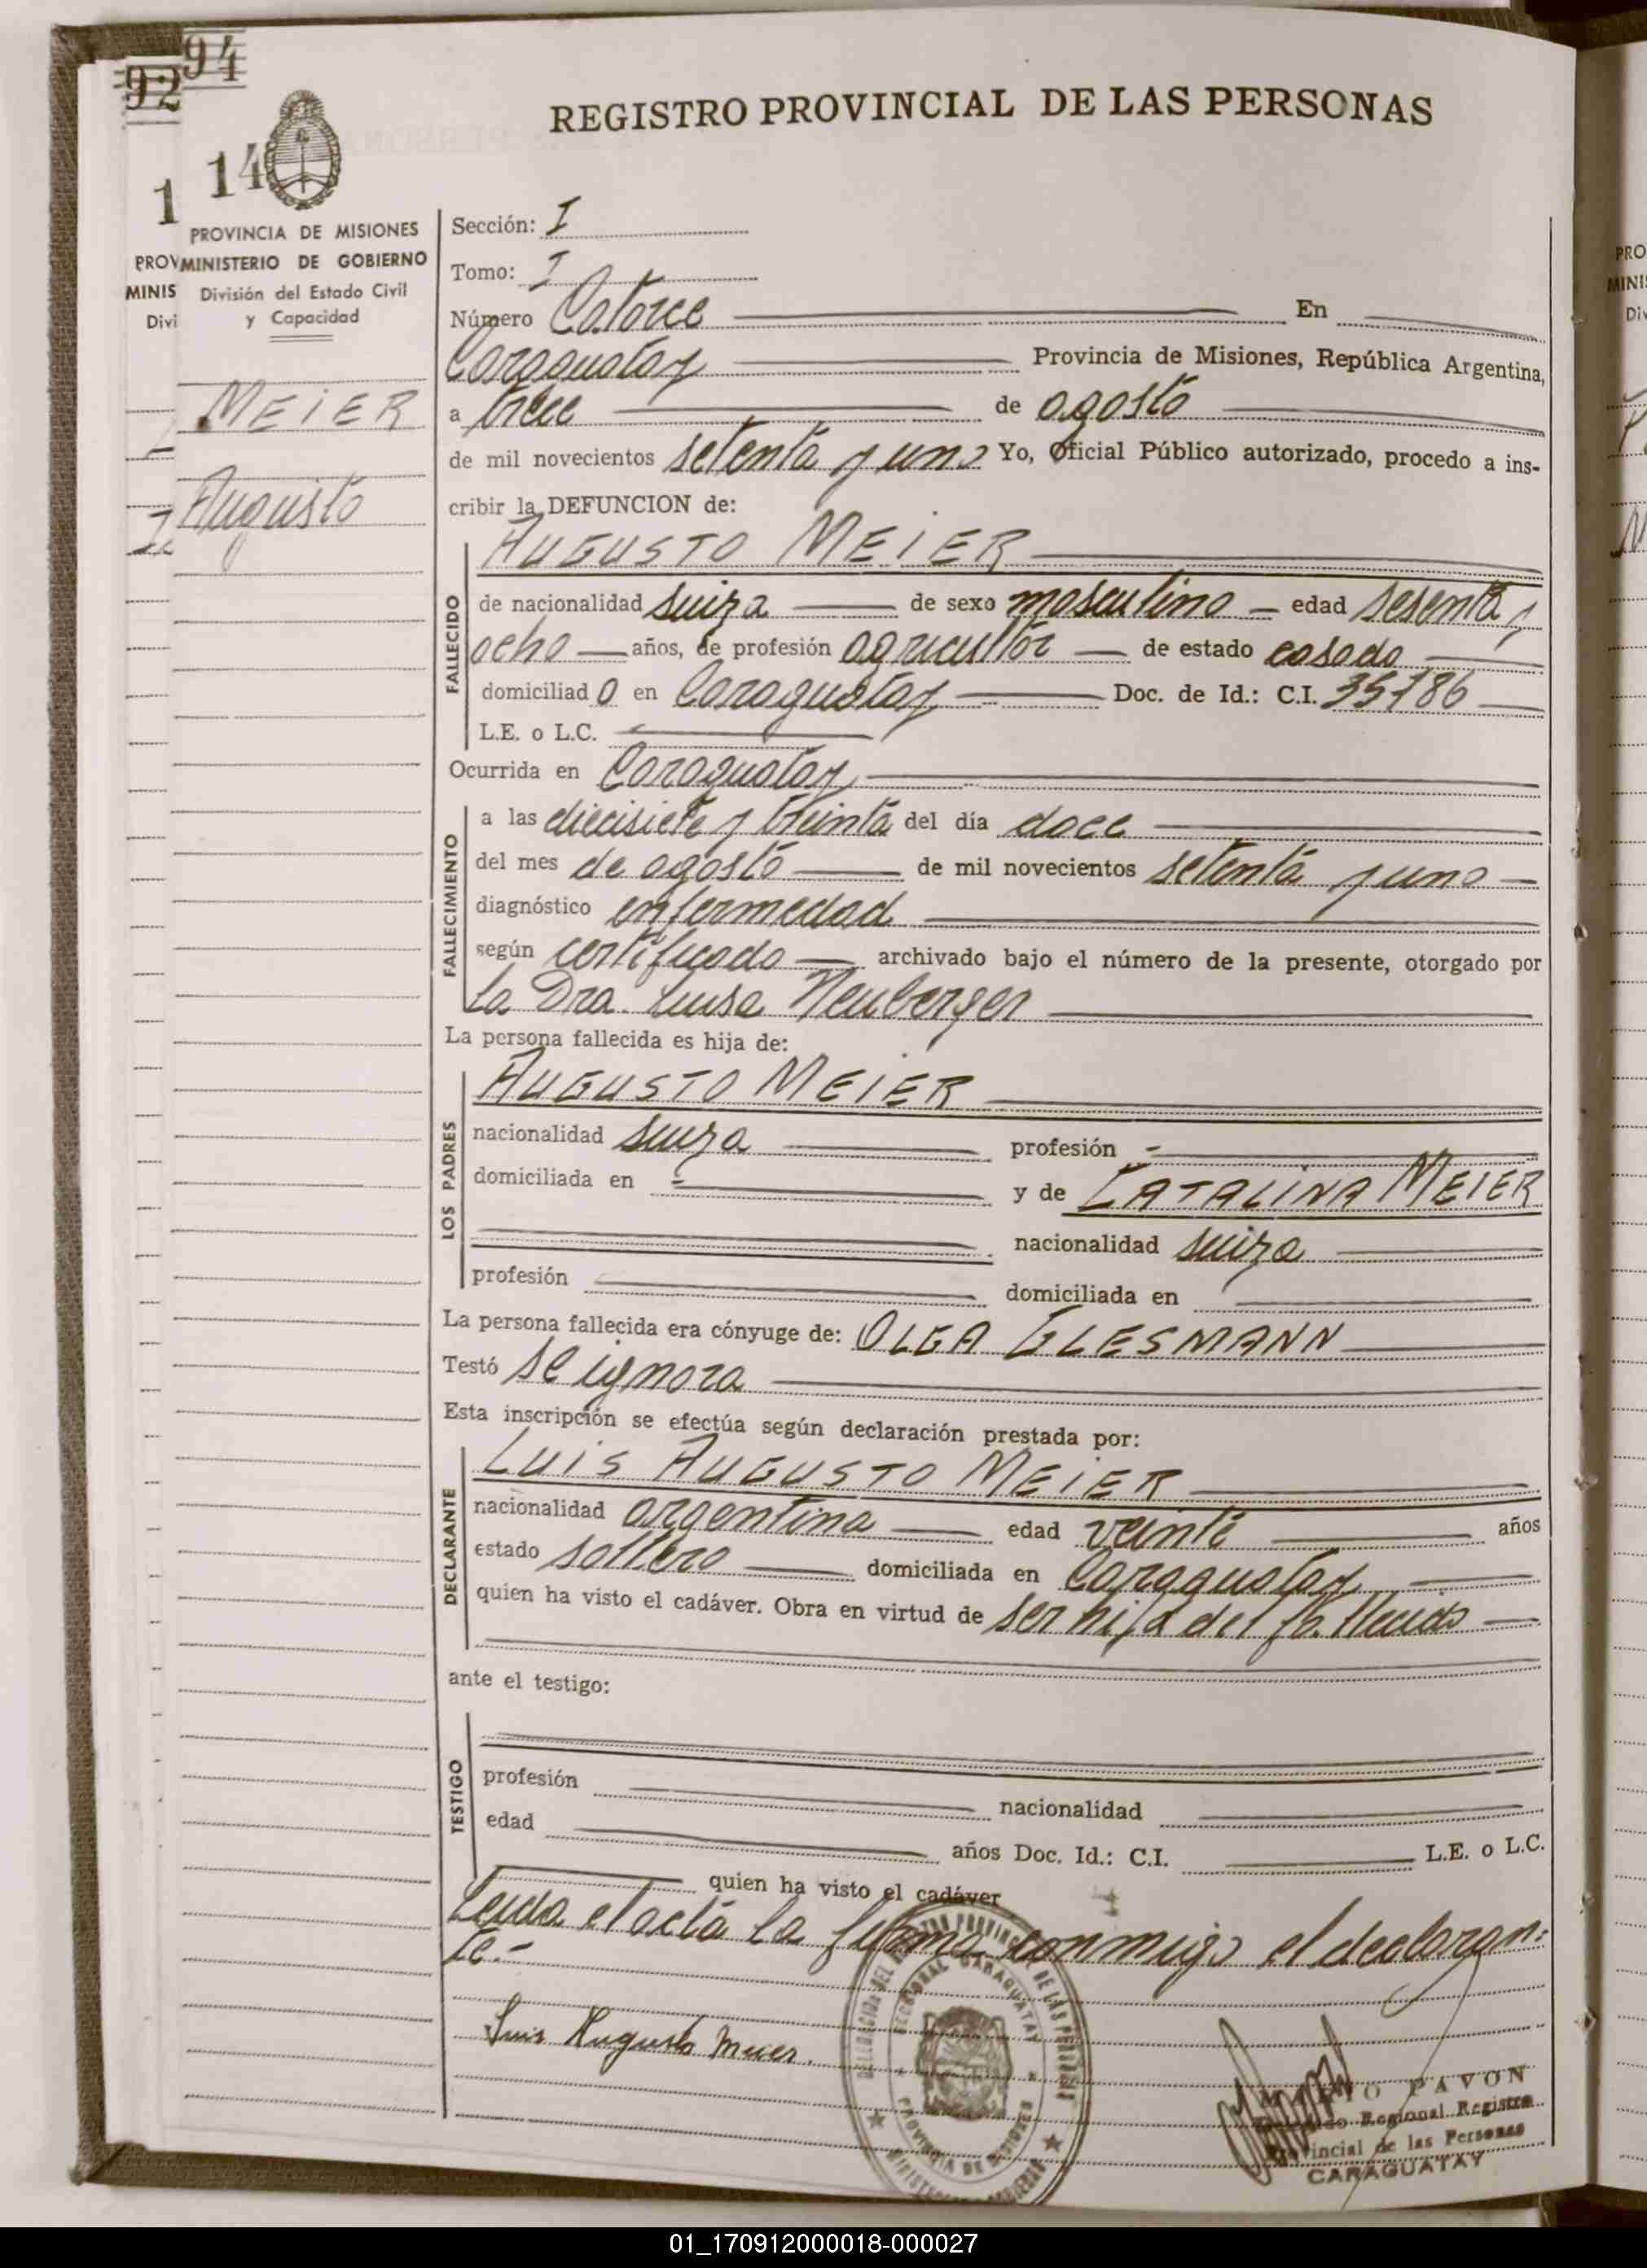 94
92
14
1
REGISTRO PROVINCIAL DE LAS PERSONAS
PROVINCIA DE MISIONES
PROV MINISTERIO DE GOBIERNO
MINIS División del Estado Civil
Divi y Capacidad
MEIER
Augusto
Sección: I
Tomo: I
Número Catorce En
Caraguatay Provincia de Misiones, República Argentina,
a trece de agosto
de mil novecientos setenta y uno Yo, Oficial Público autorizado, procedo a ins-
cribir la DEFUNCION de:
AUGUSTO MEIER
FALLECIDO
de nacionalidad suiza de sexo masculino edad sesenta y
ocho años, de profesión agricultor de estado casado
domiciliado en Caraguatay Doc. de Id.: C.I. 35786
L.E. o L.C.
Ocurrida en Caraguatay
FALLECIMIENTO
a las diecisiete y treinta del día doce
del mes de agosto de mil novecientos setenta y uno
diagnóstico enfermedad
según certificado archivado bajo el número de la presente, otorgado por
la Dra. Luisa Neuberger
La persona fallecida es hija de:
LOS PADRES
AUGUSTO MEIER
nacionalidad suiza profesión -
domiciliada en - y de CATALINA MEIER
nacionalidad suiza
profesión domiciliada en
La persona fallecida era cónyuge de: OLGA GLESMANN
Testó se ignora
Esta inscripción se efectúa según declaración prestada por:
DECLARANTE
LUIS AUGUSTO MEIER
nacionalidad argentina edad veinte años
estado soltero domiciliada en Caraguatay
quien ha visto el cadáver. Obra en virtud de ser hijo del fallecido
ante el testigo:
TESTIGO
profesión nacionalidad
edad años Doc. Id.: C.I. L.E. o L.C.
quien ha visto el cadáver
Leida el acta la firma conmigo el declaran-
te.-
Luis Augusto Meier.
DELEGACION DEL REGISTRO PROVINCIAL DE LAS PERSONAS
SECCIONAL CARAGUATAY
PROVINCIA DE MISIONES
PAVON
Regional Registro
Provincial de las Personas
CARAGUATAY
PRO
MINI
Div
01_170912000018-000027